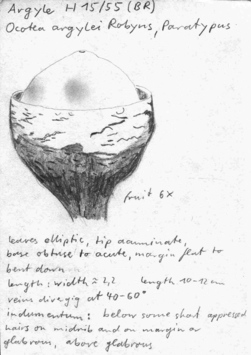 Argyle H 15/55 (BR)
Ocotea argylei Robyns, Paratypus
fruit 6x
leaves elliptic, tip acuminate,
base obtuse to acute, margin flat to
bent down
length : width ≈ 2,2 length 10-12 cm
veins diverging at 40-60°
indumentum: below some short appressed
hairs on midrib and on margin or
glabrous, above glabrous